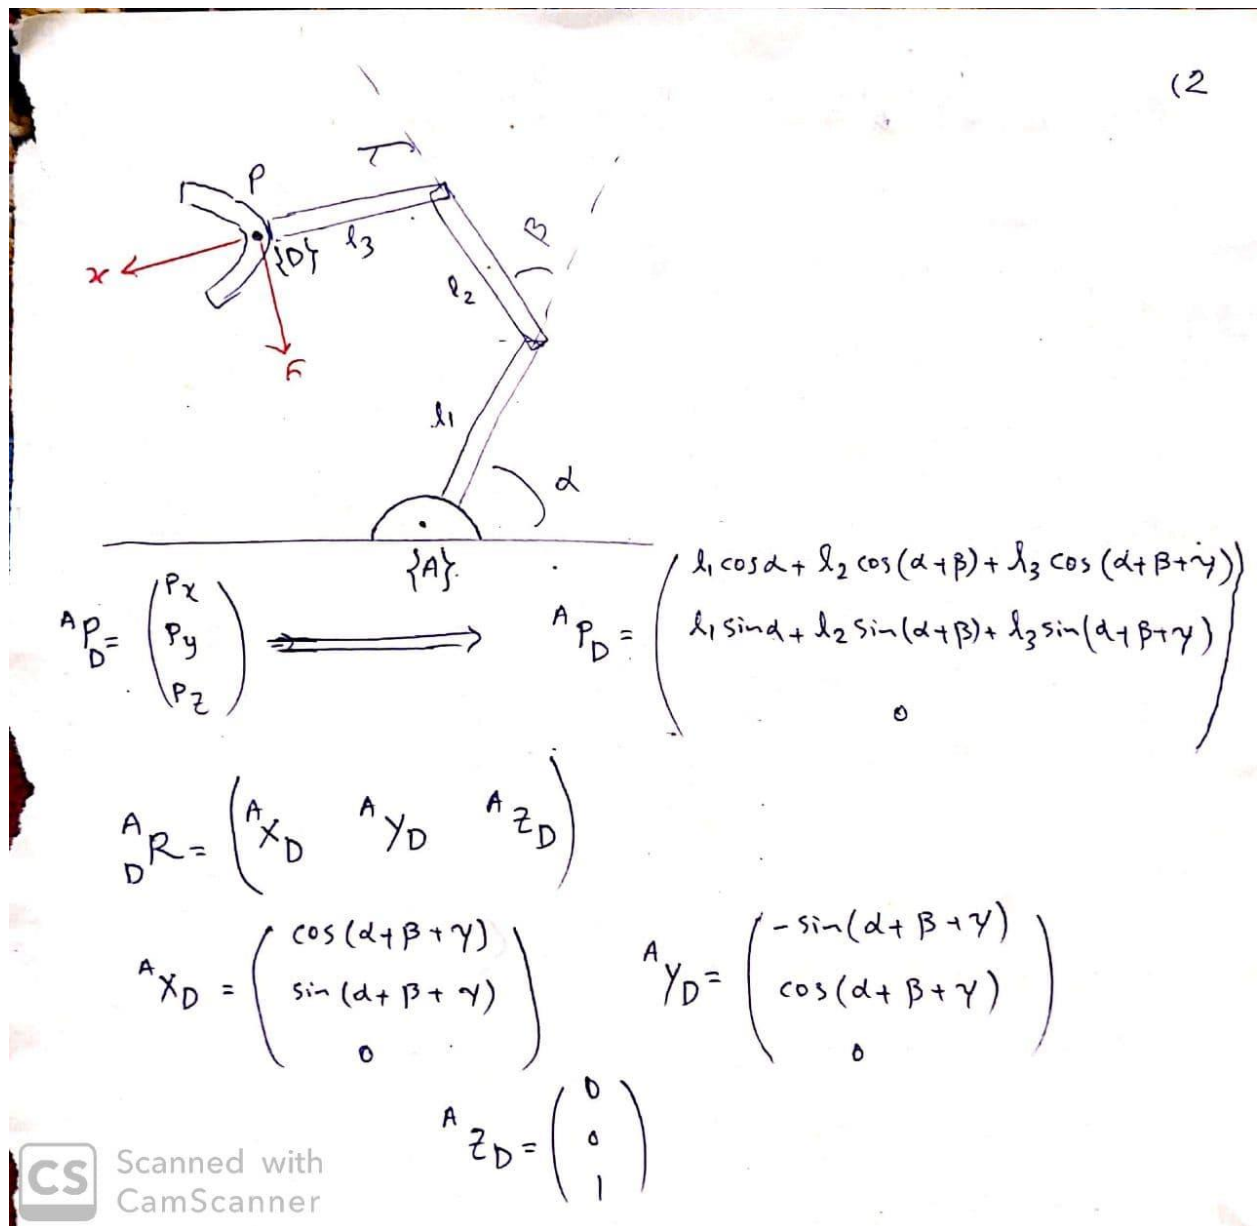 (2
P
γ
β
{D}
l₃
x
l₂
l₁
α
{A}.
ᴬP_D = (Px Py Pz) ⟹ ᴬP_D = (l₁ cosα + l₂ cos(α+β) + l₃ cos(α+β+γ))
(l₁ sinα + l₂ sin(α+β) + l₃ sin(α+β+γ))
0
ᴬ_D R = (ᴬX_D ᴬY_D ᴬZ_D)
ᴬX_D = (cos(α+β+γ) sin(α+β+γ) 0) ᴬY_D = (-sin(α+β+γ) cos(α+β+γ) 0)
ᴬZ_D = (0 0 1)
CS Scanned with
CamScanner